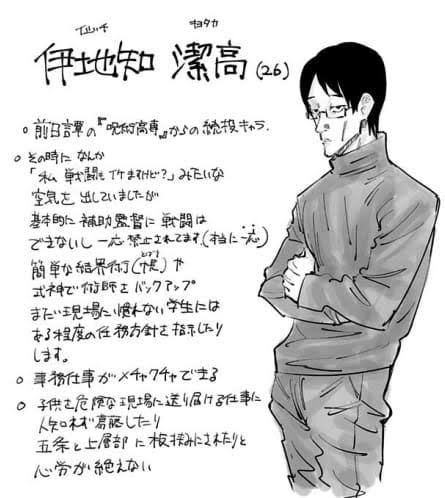 いじち キヨタカ
伊地知 潔高 (26)
○ 前日譚の『呪術高専』からの続投キャラ.
○ その時になんか
「私 戦闘もイケますけど？」みたいな
空気を 出していましたが
基本的に 補助監督に 戦闘は
できないし 一応 禁止されてます.(本当に一応)
簡単な結界術(帳)や
式神で術師をバックアップ
まだ現場に慣れない学生には
ある程度の任務方針を指示したり
します。
○ 事務仕事がメチャクチャできる
○ 子供を危険な現場に送り届ける仕事に
人知れず葛藤したり
五条と上層部に板挟みにされたりと
心労が絶えない